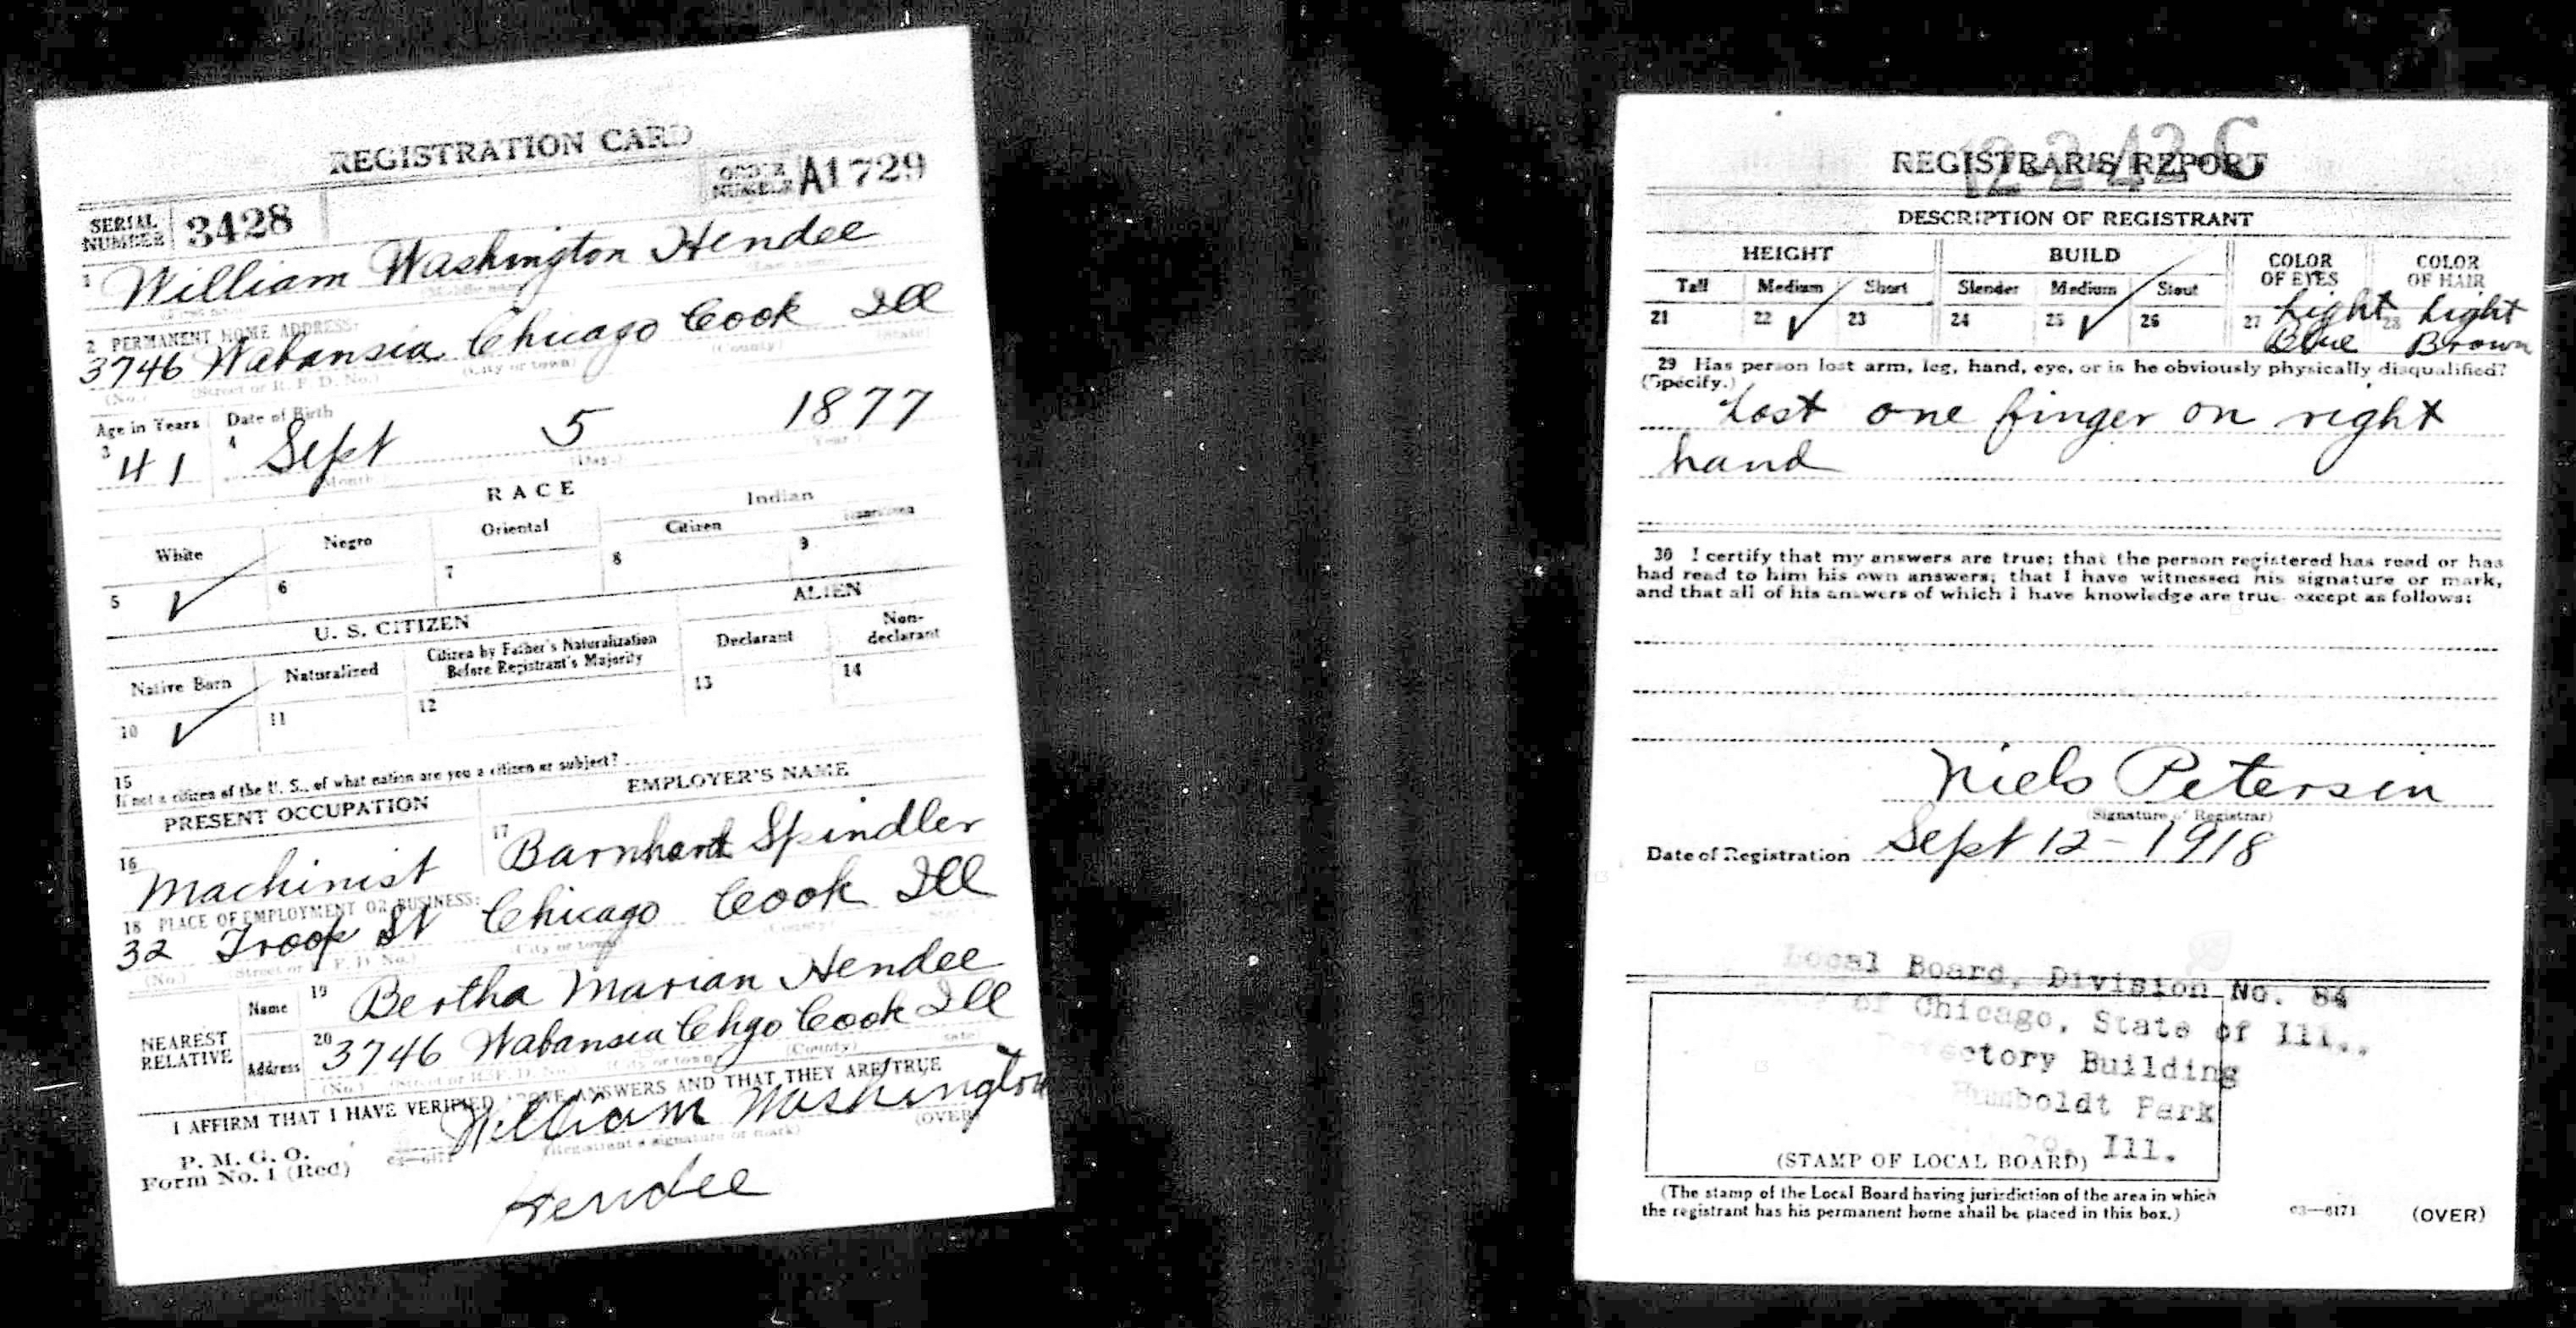 REGISTRATION CARD
SERIAL NUMBER 3428
ORDER NUMBER A1729
1 William Washington Hendee
(Middle name)
2 PERMANENT HOME ADDRESS:
3746 Wabansia Chicago Cook Ill
(No.) (Street or R. F. D. No.) (City or town) (County) (State)
Age in Years Date of Birth
3 41 4 Sept 5 1877
(Month) (Day.) (Year.)
RACE
White Negro Oriental Indian
Citizen
5 ✓ 6 7 8 9
U. S. CITIZEN ALIEN
Native Born Naturalized Citizen by Father's Naturalization Before Registrant's Majority Declarant Non-declarant
10 ✓ 11 12 13 14
15
If not a citizen of the U. S., of what nation are you a citizen or subject?
PRESENT OCCUPATION EMPLOYER'S NAME
16 Machinist 17 Barnhart Spindler
18 PLACE OF EMPLOYMENT OR BUSINESS:
32 Troop St Chicago Cook Ill
(No.) (Street or R. F. D. No.) (City or town) (County)
NEAREST RELATIVE
Name 19 Bertha Marian Hendee
Address 20 3746 Wabansia Chgo Cook Ill
(No.) (Street or R. F. D. No.) (City or town) (County) (State)
I AFFIRM THAT I HAVE VERIFIED ABOVE ANSWERS AND THAT THEY ARE TRUE
P. M. G. O.
Form No. 1 (Red) c3—6171
William Washington
(Registrant's signature or mark) (OVER)
Hendee
REGISTRAR'S REPORT
DESCRIPTION OF REGISTRANT
HEIGHT BUILD COLOR OF EYES COLOR OF HAIR
Tall Medium Short Slender Medium Stout
21 22 ✓ 23 24 25 ✓ 26 27 Light Blue 28 Light Brown
29 Has person lost arm, leg, hand, eye, or is he obviously physically disqualified?
(Specify.)
Lost one finger on right
hand
30 I certify that my answers are true; that the person registered has read or has
had read to him his own answers; that I have witnessed his signature or mark,
and that all of his answers of which I have knowledge are true, except as follows:
Niels Petersen
(Signature of Registrar)
Date of Registration Sept 12 - 1918
Local Board, Division No. 84
of Chicago, State of Ill.,
Building
Humboldt Park
Ill.
(STAMP OF LOCAL BOARD)
(The stamp of the Local Board having jurisdiction of the area in which
the registrant has his permanent home shall be placed in this box.)
c3—6171 (OVER)